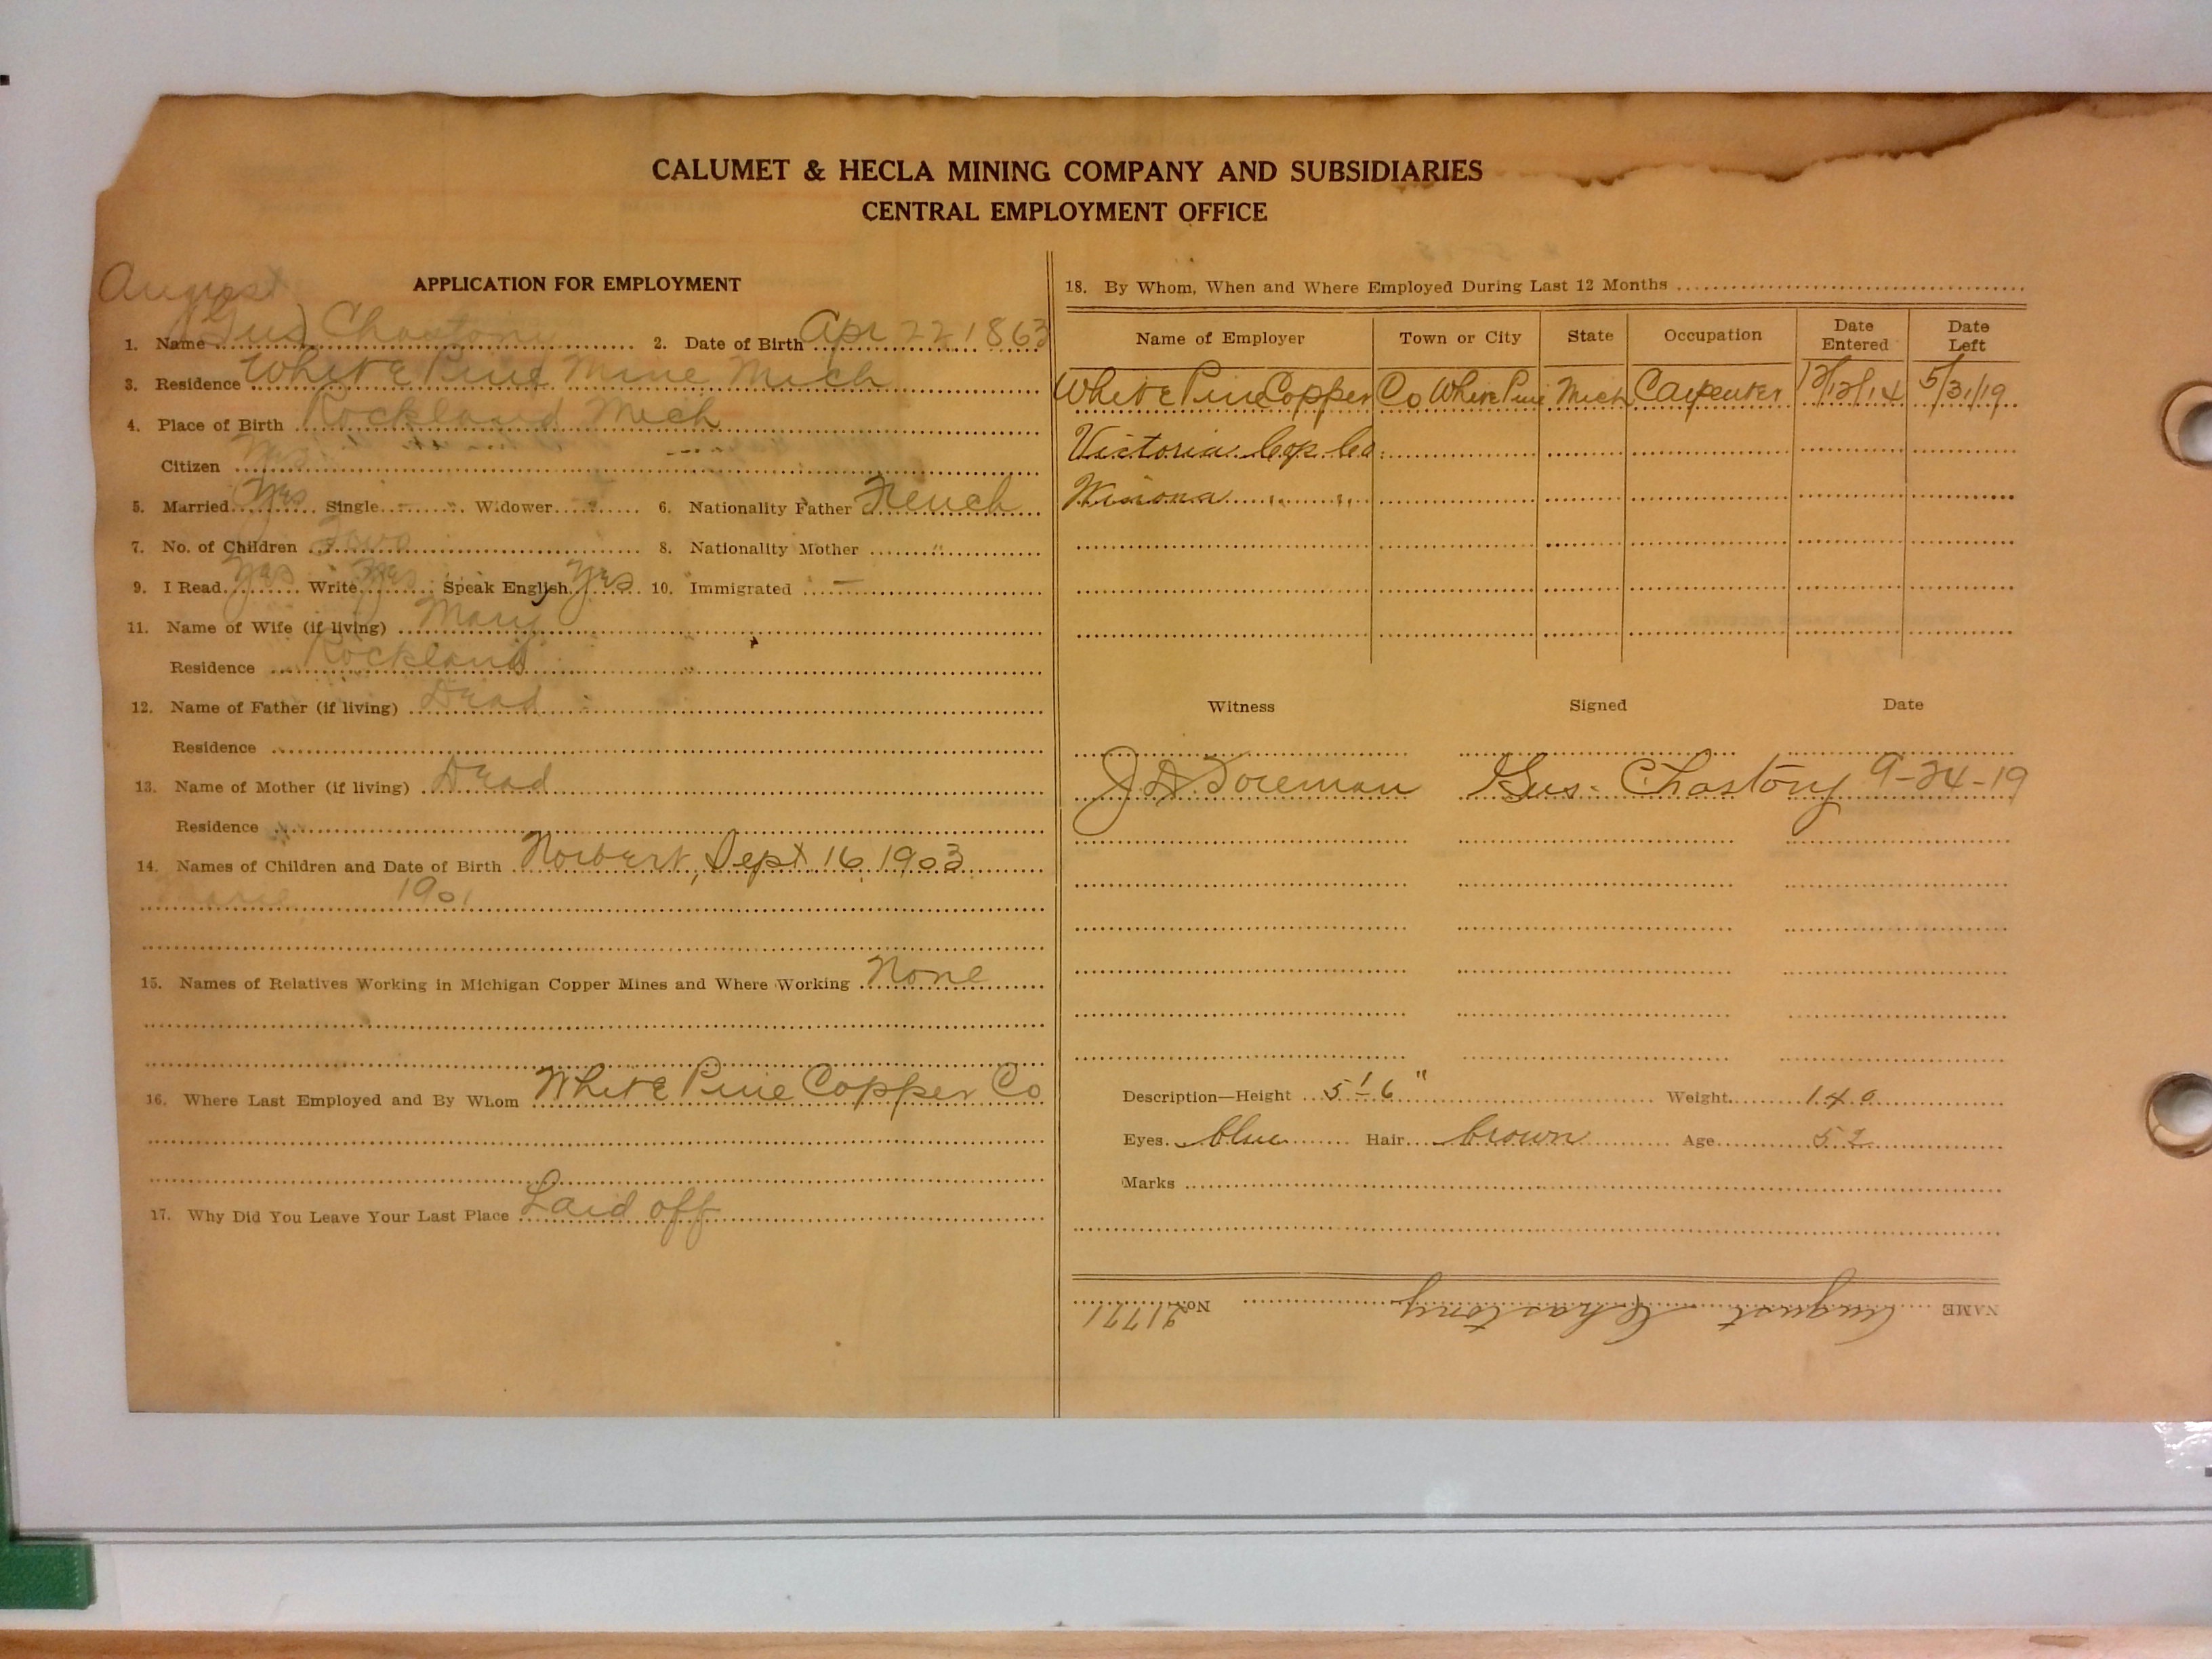 CALUMET & HECLA MINING COMPANY AND SUBSIDIARIES
CENTRAL EMPLOYMENT OFFICE
APPLICATION FOR EMPLOYMENT
August
1. Name (Gus) Chastony 2. Date of Birth Apr 22 1863
3. Residence White Pine Mine Mich
4. Place of Birth Rockland Mich
Citizen Yes
5. Married Yes Single Widower 6. Nationality Father French
7. No. of Children Two 8. Nationality Mother "
9. I Read Yes Write Yes Speak English Yes 10. Immigrated —
11. Name of Wife (if living) Mary
Residence Rockland
12. Name of Father (if living) Dead
Residence
13. Name of Mother (if living) Dead
Residence
14. Names of Children and Date of Birth Norbert, Sept 16 1903
Marie 1901
15. Names of Relatives Working in Michigan Copper Mines and Where Working None
16. Where Last Employed and By Whom White Pine Copper Co
17. Why Did You Leave Your Last Place Laid off
18. By Whom, When and Where Employed During Last 12 Months
Name of Employer Town or City State Occupation Date Entered Date Left
White Pine Copper Co White Pine Mich Carpenter 12/12/14 5/31/19
Victoria Cop Co
Winona " "
Witness Signed Date
J.D. Foreman Gus. Chastony 9-24-19
Description—Height 5' 6" Weight 140
Eyes blue Hair brown Age 52
Marks
NAME August Chastony No. 21771